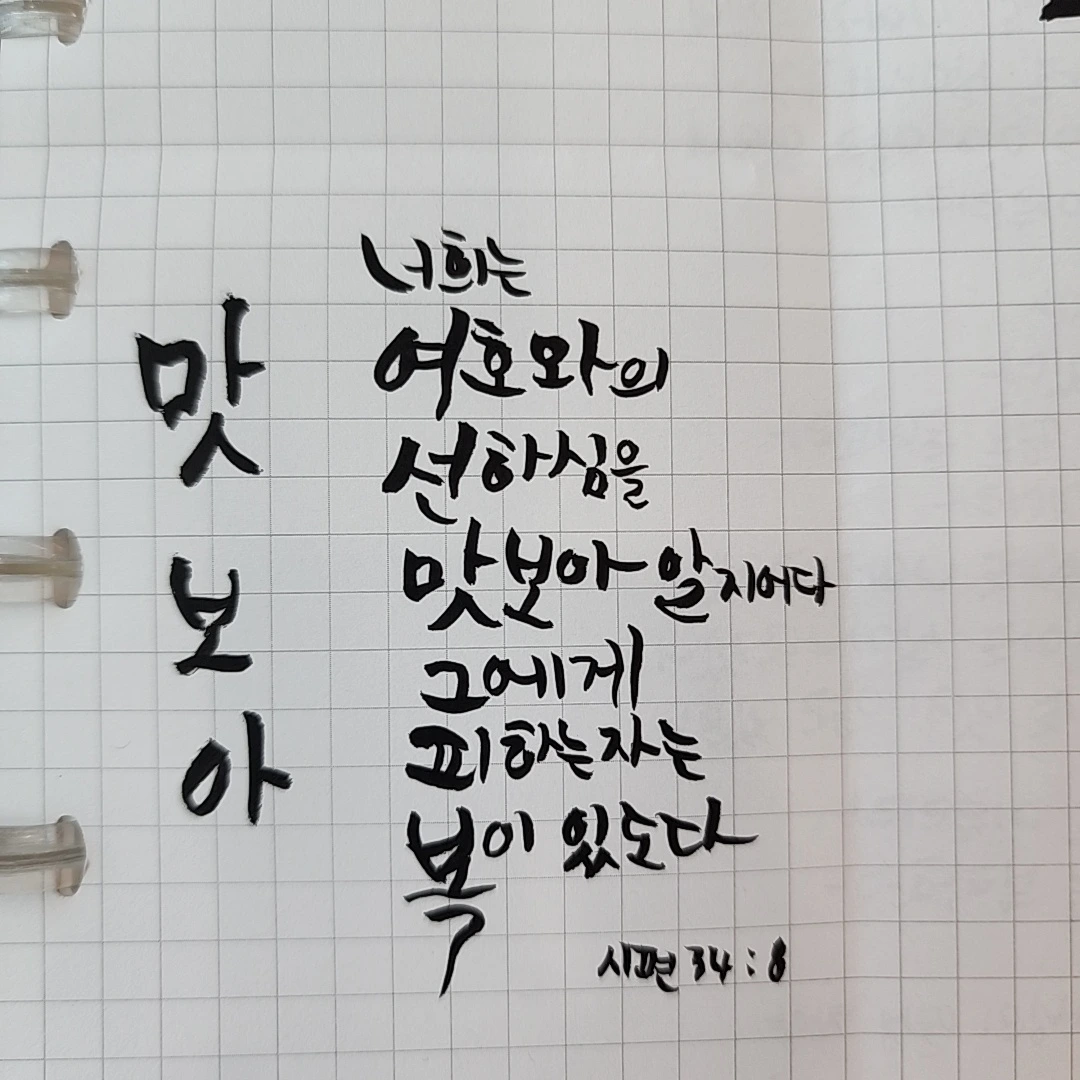 맛
보
아
너희는
여호와의
선하심을
맛보아 알지어다
그에게
피하는자는
복이 있도다
시편 34:8